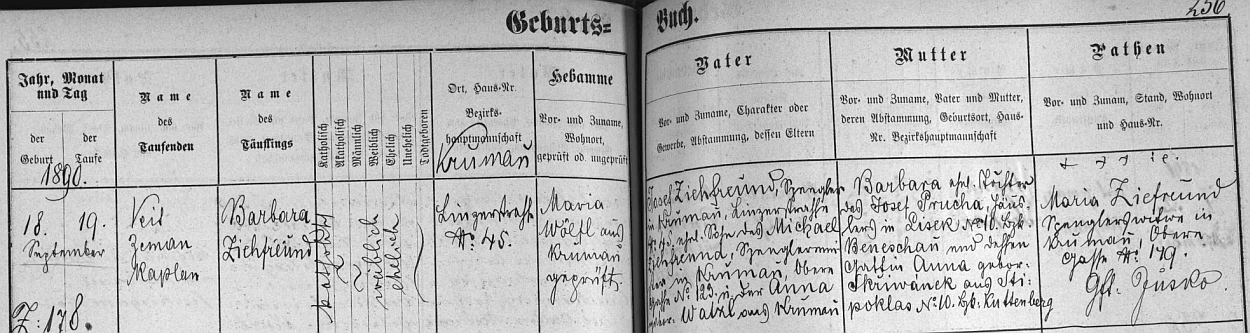 Geburts= Buch.
256
Jahr, Monat und Tag
der Geburt
der Taufe
1890.
Name des Taufenden
Name des Täuflings
Katholisch
Akatholisch
Männlich
Weiblich
Ehelich
Unehelich
Todtgeboren
Ort, Haus-Nr. Bezirks-hauptmannschaft
Krumau
Hebamme
Vor- und Zuname, Wohnort, geprüft od. ungeprüft
Vater
Vor- und Zuname, Charakter oder
Gewerbe, Abstammung, dessen Eltern
Mutter
Vor- und Zuname, Vater und Mutter,
deren Abstammung, Geburtsort, Haus-
Nr. Bezirkshauptmannschaft
Pathen
Vor- und Zunam, Stand, Wohnort
und Haus-Nr.
18. 19.
September
Z: 178.
Veit
Zeman
Kaplan
Barbara
Ziehfreund
katholisch
weiblich
ehelich
Linzerstraße
N: 45.
Maria
Wölfl aus
Krumau
geprüft.
Josef Ziehfreund, Spengler
in Krumau, Linzerstraße
N: 45, ehel. Sohn des Michael
Ziehfreund, Spenglermei-
ster in Krumau, Obere
Gasse N: 123 u. der Anna
gebor. Watzl aus Krumau
Barbara ehel. Tochter
des Josef Prucha, Häus-
lers in Lisek N: 10. Bzk.
Beneschau und dessen
Gattin Anna gebor.
Skřiwanek aus Sti-
poklas N: 10. Bzk. Kuttenberg
Maria Ziefreund
Spenglerswitwe in
Krumau, Obere
Gasse N: 149.
Gft. Jusko.